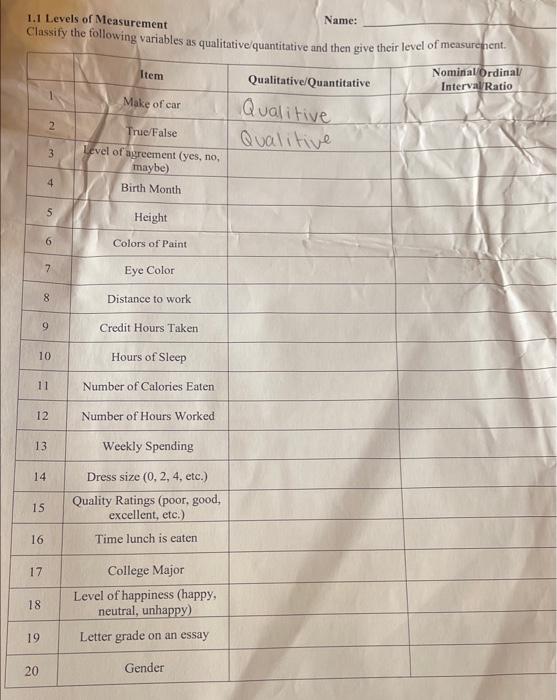 1.1 Levels of Measurement Name:
Classify the following variables as qualitative/quantitative and then give their level of measurement.
Item Qualitative/Quantitative Nominal/Ordinal/
Interval/Ratio
1 Make of car Qualitive
2 True/False Qualitive
3 Level of agreement (yes, no,
maybe)
4 Birth Month
5 Height
6 Colors of Paint
7 Eye Color
8 Distance to work
9 Credit Hours Taken
10 Hours of Sleep
11 Number of Calories Eaten
12 Number of Hours Worked
13 Weekly Spending
14 Dress size (0, 2, 4, etc.)
15 Quality Ratings (poor, good,
excellent, etc.)
16 Time lunch is eaten
17 College Major
18 Level of happiness (happy,
neutral, unhappy)
19 Letter grade on an essay
20 Gender